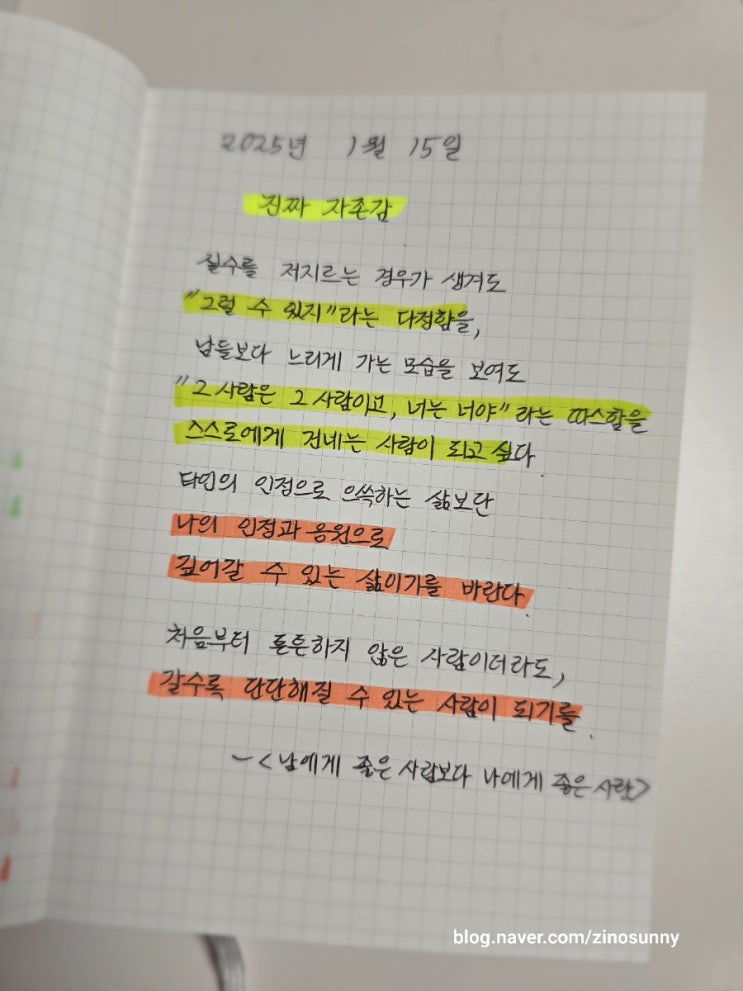 2025년 1월 15일
진짜 자존감
실수를 저지르는 경우가 생겨도
"그럴 수 있지"라는 다정함을,
남들보다 느리게 가는 모습을 보여도
"그 사람은 그 사람이고, 너는 너야"라는 따스함을
스스로에게 건네는 사람이 되고 싶다.
타인의 인정으로 으쓱하는 삶보단
나의 인정과 응원으로
깊어갈 수 있는 삶이기를 바란다.
처음부터 튼튼하지 않은 사람이더라도,
갈수록 단단해질 수 있는 사람이 되기를.
-<남에게 좋은 사람보다 나에게 좋은 사람>
blog.naver.com/zinosunny